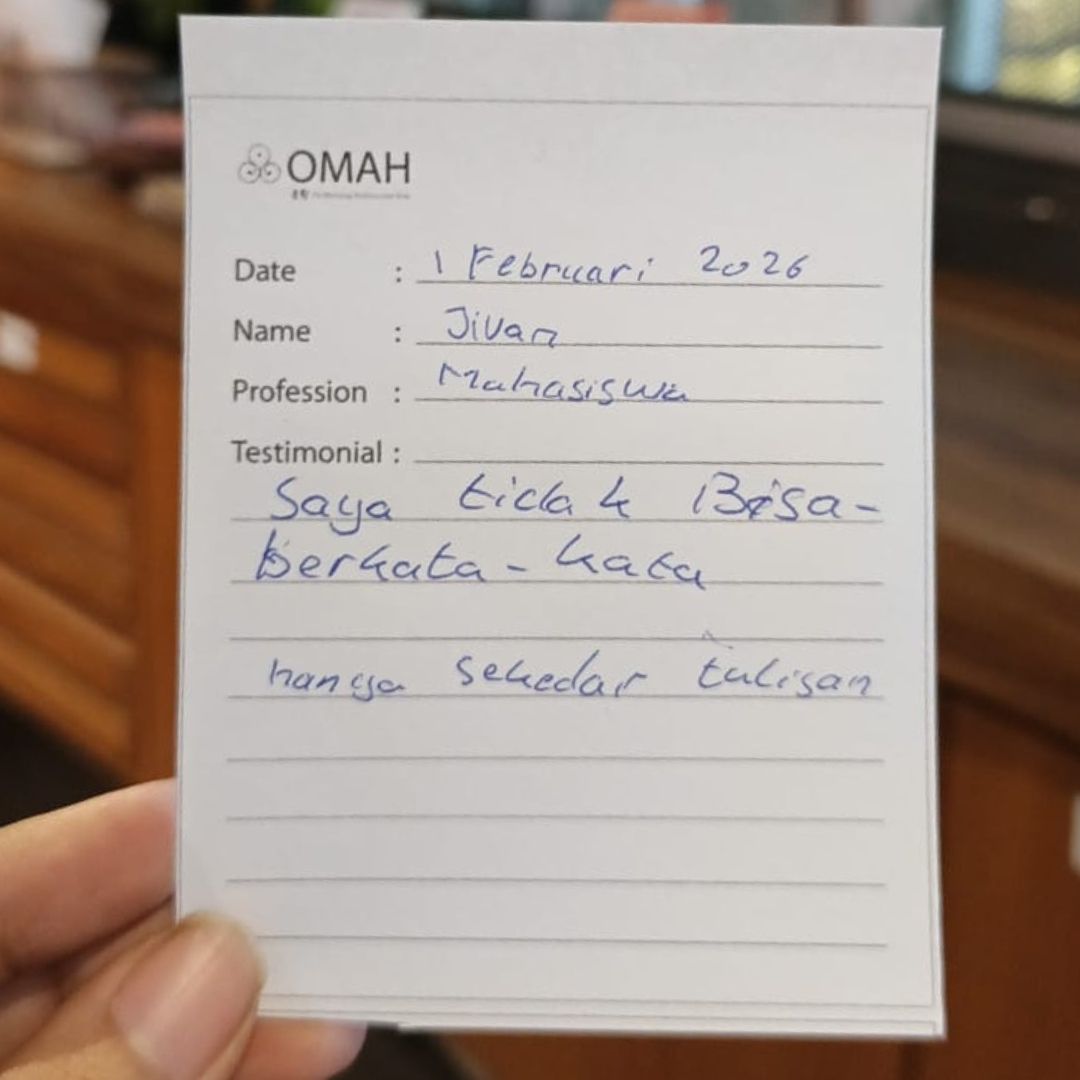 OMAH
Date : 1 Februari 2026
Name : Jivan
Profession : Mahasiswa
Testimonial :
Saya tidak Bisa-
berkata-kata
hanya sekedar tulisan